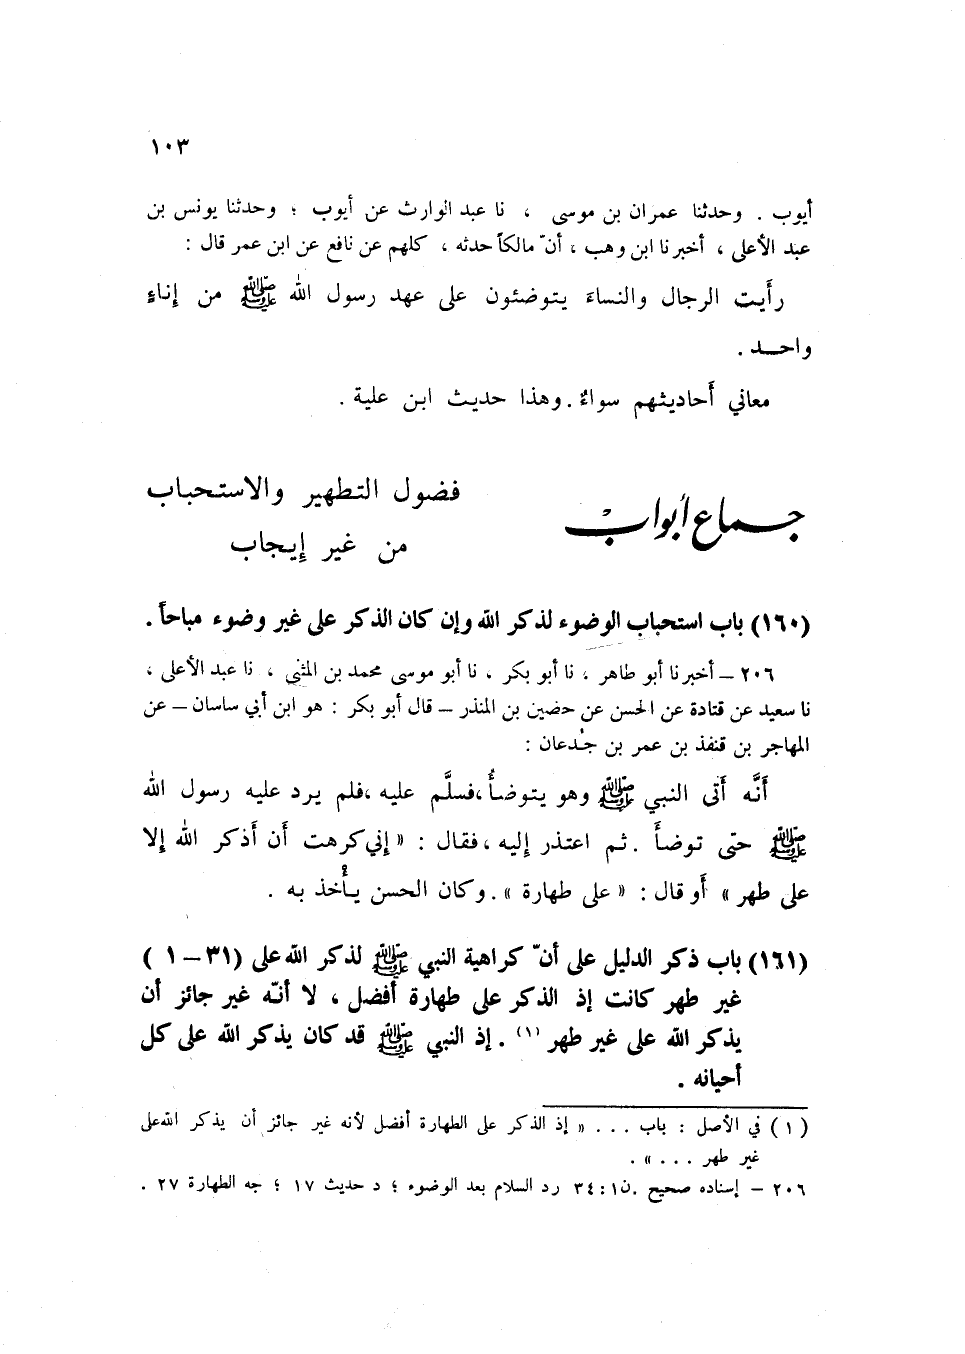 ١٠٣
أيوب . وحدثنا عمران بن موسى ، نا عبد الوارث عن أيوب ؛ وحدثنا يونس بن
عبد الأعلى ، أخبرنا ابن وهب ، أنّ مالكاً حدثه ، كلهم عن نافع عن ابن عمر قال :
رأيت الرجال والنساء يتوضئون على عهد رسول الله ﷺ من إناءٍ
واحـــد .
معاني أحاديثهم سواءٌ . وهذا حديث ابن علية .
جماع أبواب
فضول التطهير والاستحباب
من غير إيجاب
(١٦٠) باب استحباب الوضوء لذكر الله وإن كان الذكر على غير وضوء مباحاً .
٢٠٦ – أخبرنا أبو طاهر ، نا أبو بكر ، نا أبو موسى محمد بن المثنى ، نا عبد الأعلى ،
نا سعيد عن قتادة عن الحسن عن حضين بن المنذر – قال أبو بكر : هو ابن أبي ساسان – عن
المهاجر بن قنفذ بن عمر بن جُدعان :
أنَّه أتى النبي ﷺ وهو يتوضأُ ، فسلَّم عليه ، فلم يرد عليه رسول الله
ﷺ حتى توضأَ . ثم اعتذر إليه ، فقال : « إني كرهت أن أذكر الله إلا
على طهر » أو قال : « على طهارة » . وكان الحسن يأْخذ به .
(١٦١) باب ذكر الدليل على أنّ كراهية النبي ﷺ لذكر الله على (٣١ – ١ )
غير طهر كانت إذ الذكر على طهارة أفضل ، لا أنّه غير جائز أن
يذكر الله على غير طهر (١) . إذ النبي ﷺ قد كان يذكر الله على كل
أحيانه .
( ١ ) في الأصل : باب . . . « إذ الذكر على الطهارة أفضل لأنه غير جائز أن يذكر الله على
غير طهر . . . » .
٢٠٦ – إسناده صحيح . ن ١ : ٣٤ رد السلام بعد الوضوء ؛ د حديث ١٧ ؛ جه الطهارة ٢٧ .